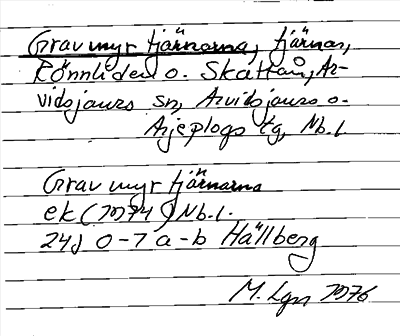 Gravmyrtjärnarna, tjärnar,
Rönnliden o. Skåttan, Ar-
vidsjaurs sn, Arvidsjaurs o.
Arjeplogs tg, Nb.l.
Gravmyrtjärnarna
ek (1974) Nb.l.
24J 0-7 a-b Hällberg
M. Lgn 1976